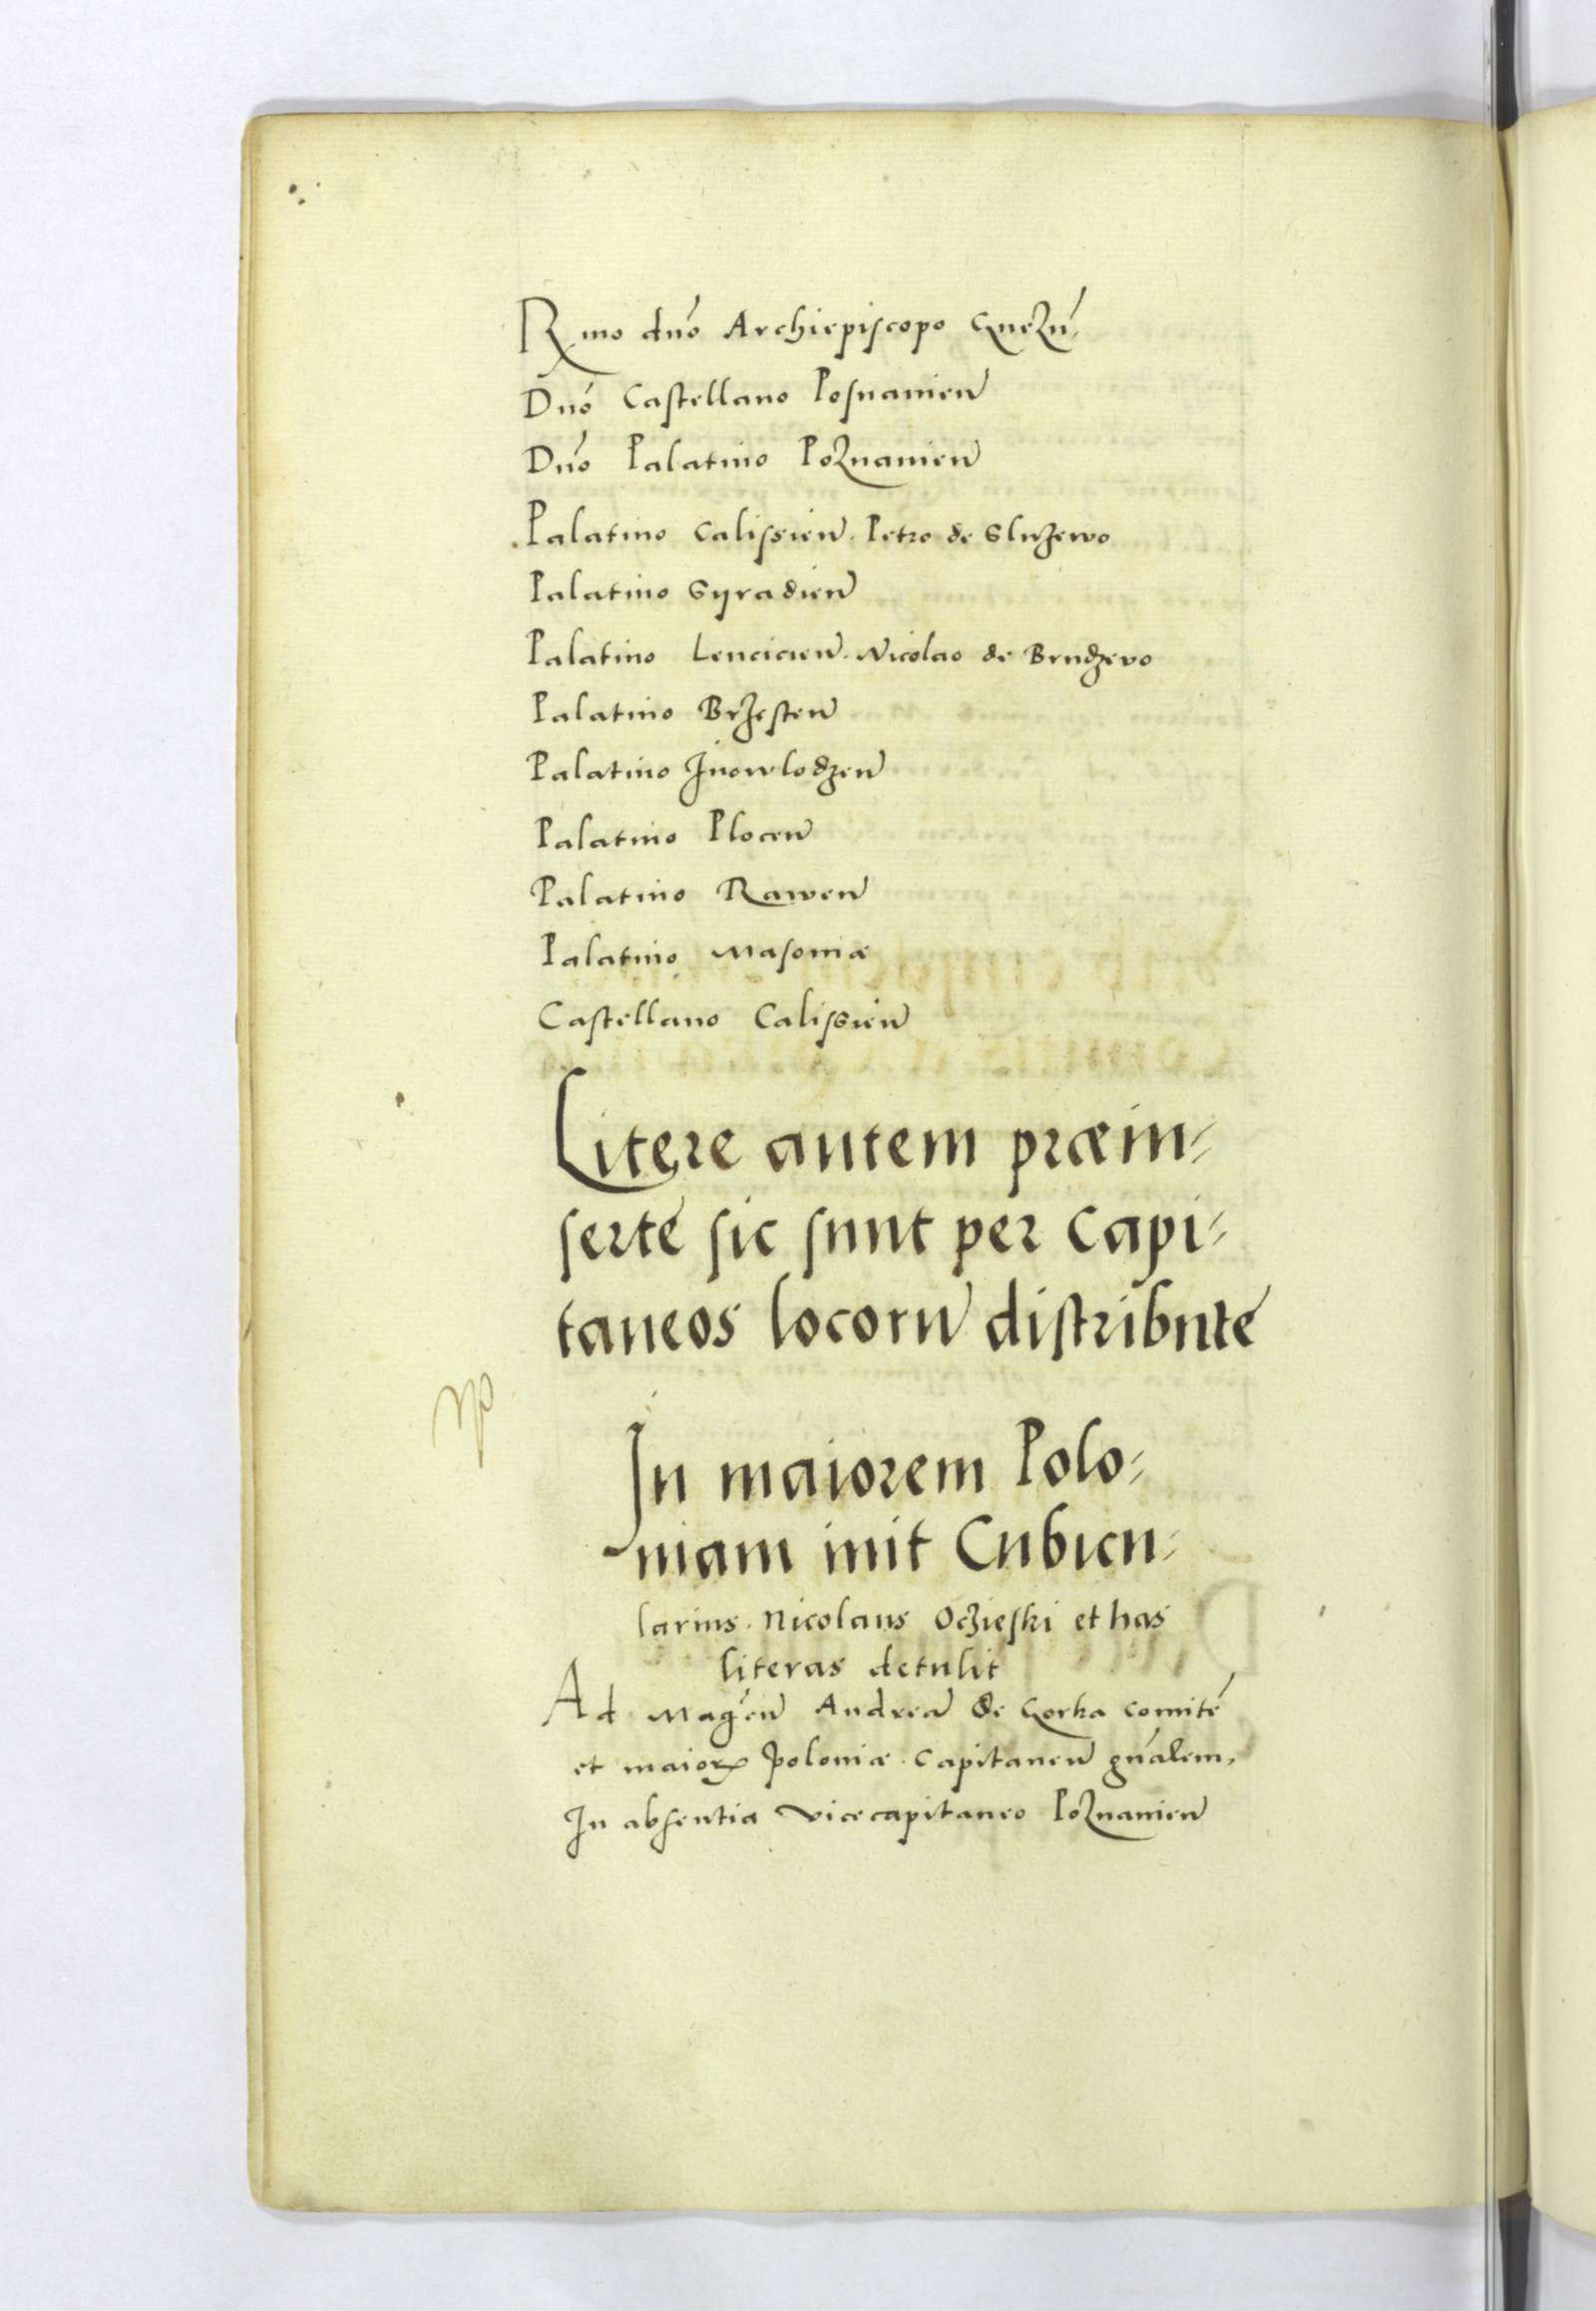 Rmo dno Archiepiscopo Gnezn
Dno Castellano Posnanien
Dno Palatino Poznanien
Palatino Calissien. Petro de Sluzewo
Palatino Syradien
Palatino Lencicien. Nicolao de Brudzevo
Palatino Brzesten
Palatino Inowlodzen
Palatino Plocen
Palatino Rawen
Palatino Masoviæ
Castellano Calissien
Litere autem præin-
serte sic sunt per Capi-
taneos locoru distribute
In maiorem Polo-
niam iuit Cubicu-
larius. Nicolaus Oczieski et has
literas detulit
Ad Magcu Andrea de Gorka comite
et maioris Poloniæ. Capitaneu gnalem,
In absentia vicecapitaneo Poznanien